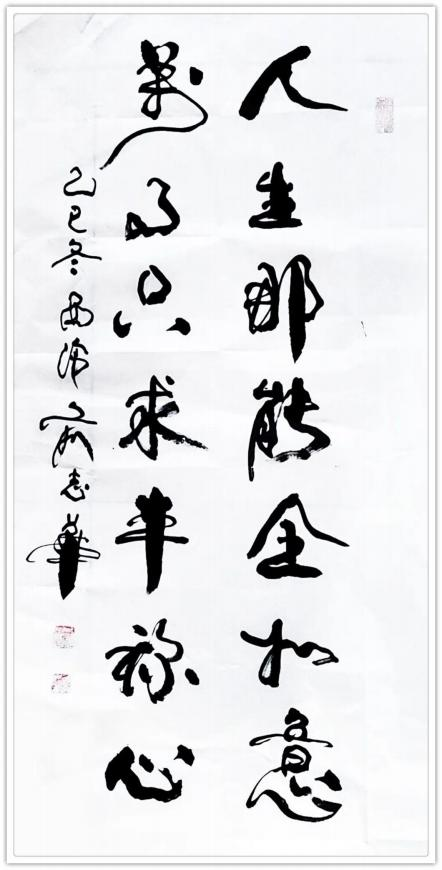 人生那能全如意
萬事只求半称心
乙巳冬西志華